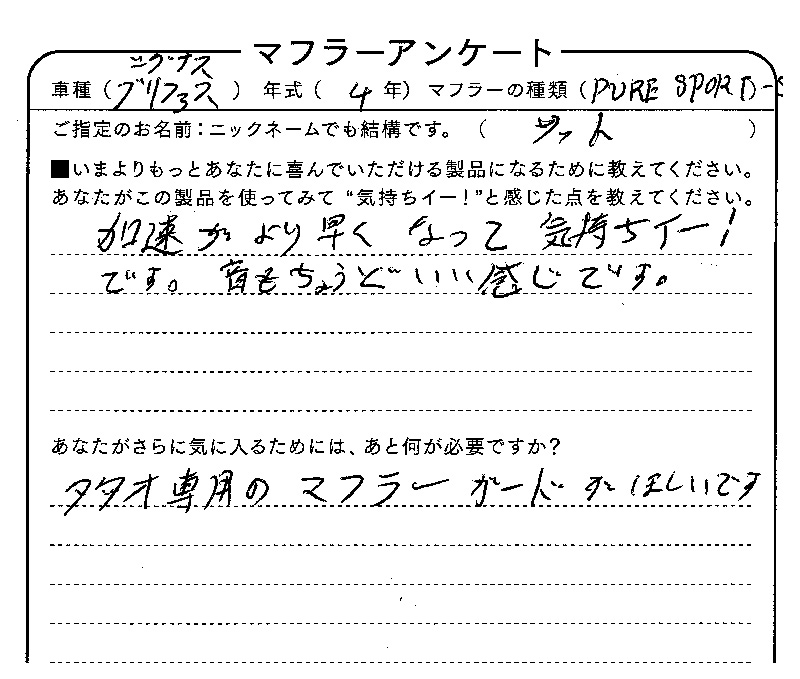 マフラーアンケート
シグナス
車種（グリファス） 年式（ 4 年） マフラーの種類（PURE SPORT D-S
ご指定のお名前：ニックネームでも結構です。（ ）
■いまよりもっとあなたに喜んでいただける製品になるために教えてください。
あなたがこの製品を使ってみて“気持ちイー！”と感じた点を教えてください。
加速がより早くなって気持ちイー！
です。音もちょうどいい感じです。
あなたがさらに気に入るためには、あと何が必要ですか？
タタオ専用のマフラーガードがほしいです